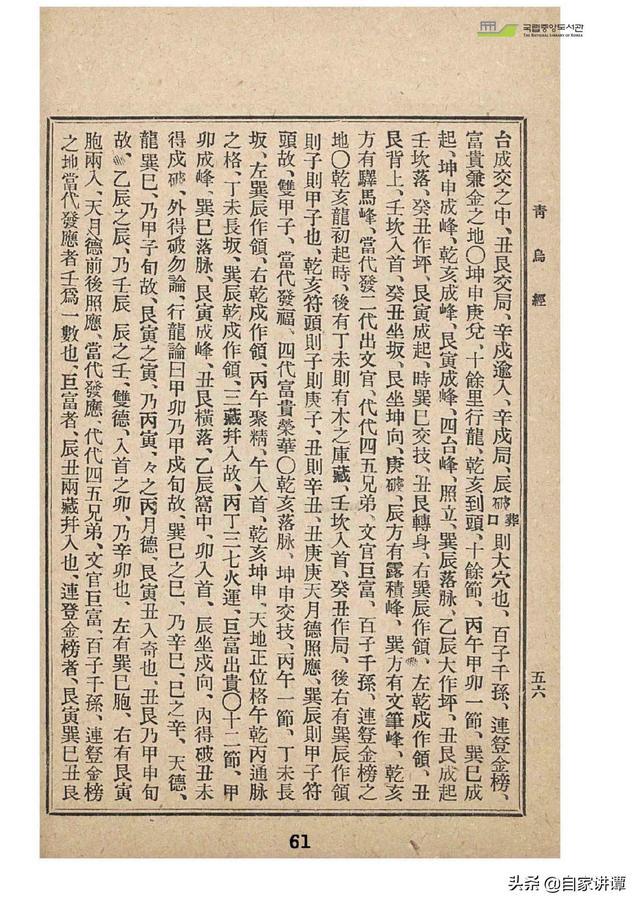 국립중앙도서관
THE NATIONAL LIBRARY OF KOREA
青烏經
五六
台成交之中、丑艮交局、辛戌逾入、辛戌局、辰破口葬則大穴也、百子千孫、連登金榜、
富貴兼金之地〇坤申庚兌、十餘里行龍、乾亥到頭、十餘節、丙午甲卯一節、巽巳成
起、坤申成峰、乾亥成峰、艮寅成峰、四台峰、照立、巽辰落脉、乙辰大作坪、丑艮成起
壬坎落、癸丑作坪、艮寅成起、時巽巳交技、丑艮轉身、右巽辰作領、左乾戌作領、丑
艮背上、壬坎入首、癸丑坐坂、艮坐坤向、庚破、辰方有露積峰、巽方有文筆峰、乾亥
方有驛馬峰、當代發二代出文官、代代四五兄弟、文官巨富、百子千孫、連登金榜之
地〇乾亥龍初起時、後有丁未則有木之庫藏、壬坎入首、癸丑作局、後右有巽辰作領
則子則甲子也、乾亥符頭則子則庚子、丑則辛丑、丑庚庚天月德照應、巽辰則甲子符
頭故、雙甲子、當代發福、四代富貴榮華〇乾亥落脉、坤申交技、丙午一節、丁未長
坂、左巽辰作領、右乾戌作領、丙午聚精、午入首、乾亥坤申、天地正位格午乾丙通脉
之格、丁未長坂、巽辰乾戌作領、三藏幷入故、丙丁三七火運、巨富出貴〇十二節、甲
卯成峰、巽巳落脉、艮寅成峰、丑艮橫落、乙辰窩中、卯入首、辰坐戌向、內得破丑未
得戌破、外得破勿論、行龍論曰甲卯乃甲戌旬故、巽巳之巳、乃辛巳、巳之辛、天德、
龍巽巳、乃甲子旬故、艮寅之寅、乃丙寅、々之丙月德、艮寅丑入奇也、丑艮乃甲申旬
故、乙辰之辰、乃壬辰、辰之壬、雙德、入首之卯、乃辛卯也、左有巽巳胞、右有艮寅
胞兩入、天月德前後照應、當代發應、代代四五兄弟、文官巨富、百子千孫、連登金榜
之地當代發應者壬爲一數也、巨富者、辰丑兩藏幷入也、連登金榜者、艮寅巽巳丑艮
61
头条 @自家讲谭